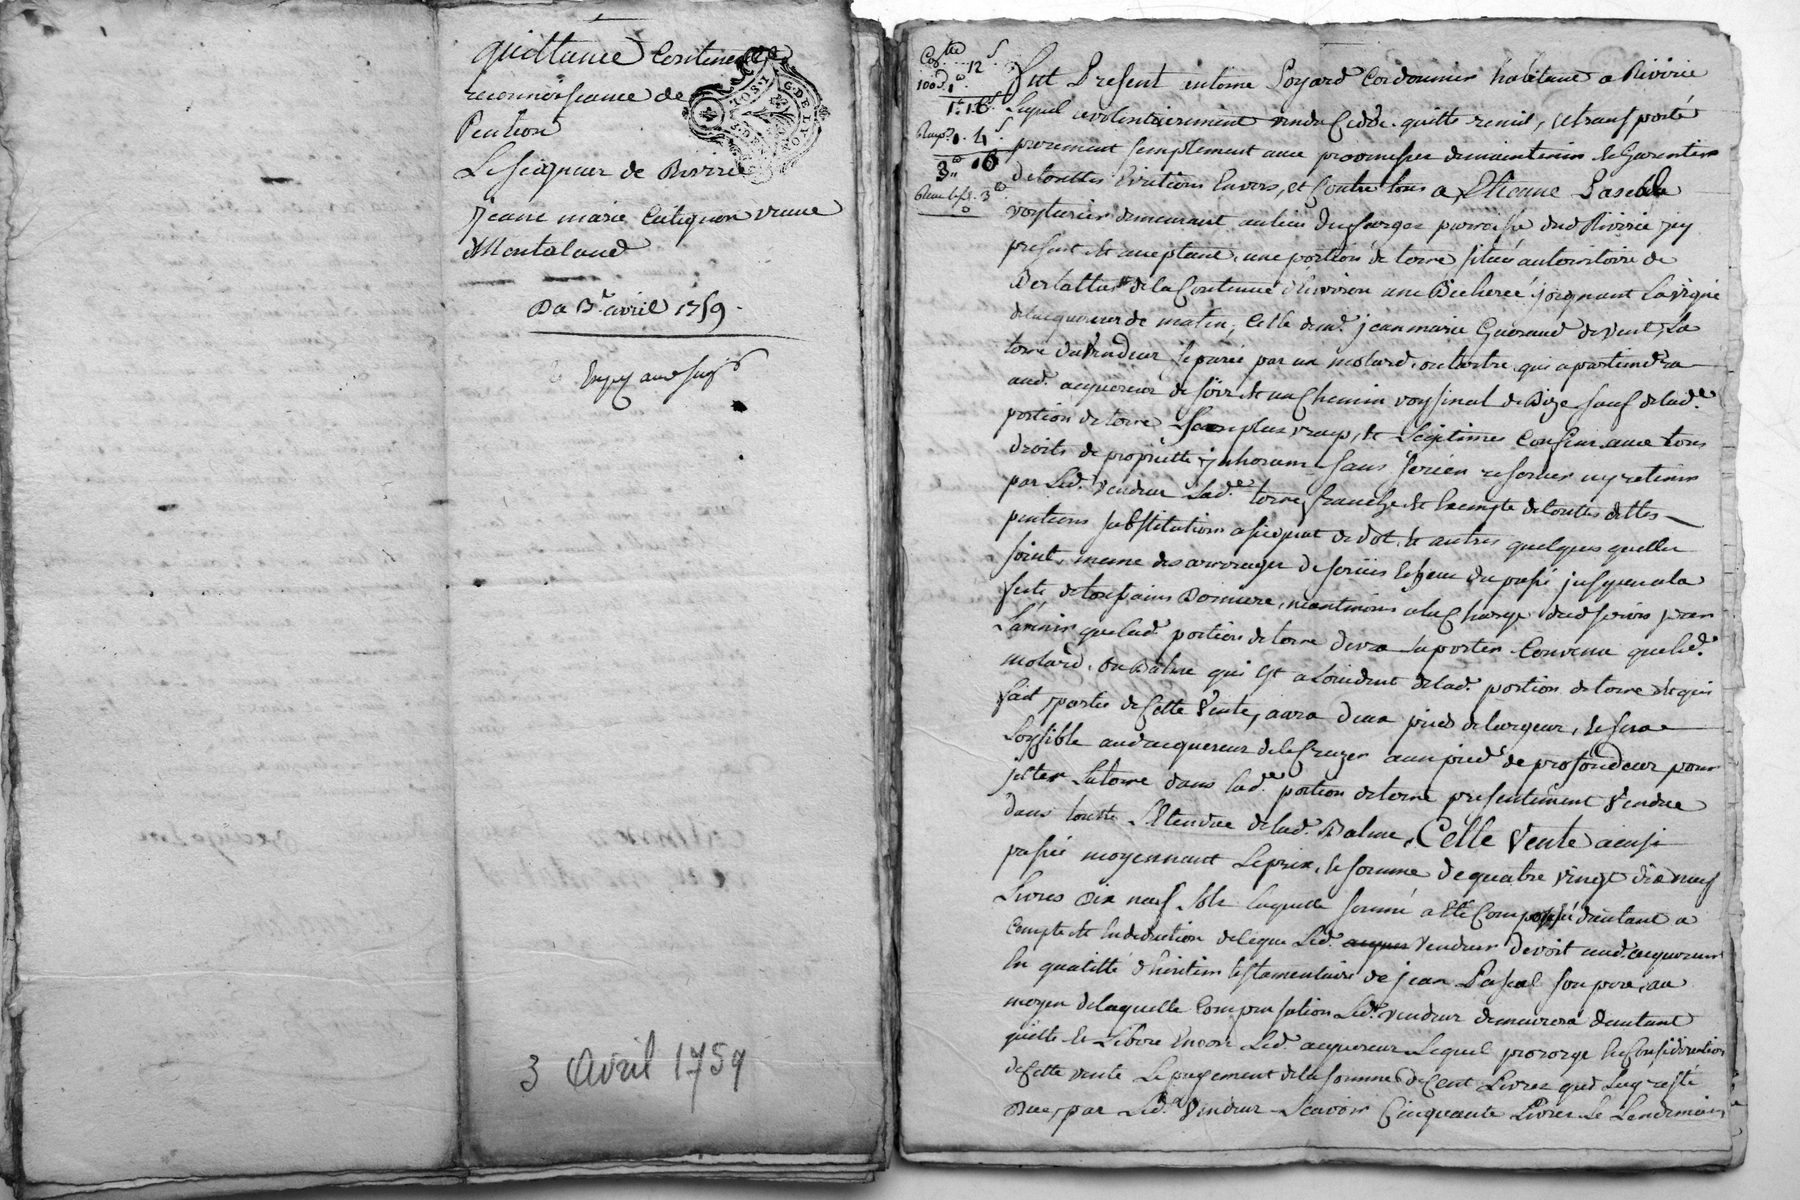 quittance Contenant
reconnoissance de
Pention
Le seigneur de Riverie
jeane marie veuve
Du 3e avril 1759.
3 Avril 1759
12 s
100
4 s
Fut Present entoine Poyard Cordonnier habitant a Riverie
Lequel volontairement vendu Cedde quitte remis, et transporté
purement simplement avec promesse de maintenir et Garentir
de touttes Evictions Envers, et Contre tous a Etienne Pascal
voyturier demeurant au lieu parroisse dud Riverie jcy
present et acceptant, une portion de terre située au territoire de
de la Contenue d'Environ une Bicherée joignant La vigne
de lacquereur de matin, Celle de jean marie de vent, La
terre du Vendeur separée par un molard, ou tertre qui apartiendra
aud. acquereur de soir et un Chemin voysinal de Bize sauf de lad.e
portion de terre ses plus vrays, et Legitimes Confins avec tous
droits de proprietté sans s'y rien reserver ny retenir
par Led. Vendeur Lad.e terre franche et Exempte de touttes dettes
pentions substitutions de dot, et autres quelques quelles
soint, meme des arrerages de servis Echeus du passé jusques a la
feste de toussaints Derniere, neantmoins a la Charge dud servis pour
L'avenir que lad. portion de terre devra suporter Convenu que led.
molard, ou Balme qui est a Loccident de lad. portion de terre et qui
fait partie de Cette Vente, aura deux pieds de largeur, et sera
Loysible aud acquereur de le Creuzer a un pied de profondeur pour
jetter La terre dans lad.e portion de terre presentement Vendue
dans toutte L'Etendue de lad. Balme, Cette Vente ainsi
passée moyennant Le prix, et somme de quatre vingt dix neuf
Livres dix neuf sols laquelle somme a Eté Compensée d'autant a
Compte et En deduction de Ceque Led. vendeur devoit aud. acquereur
En qualitté d'heritier testamentaire de jean Pascal son pere, au
moyen de laquelle Compensation Led. vendeur demeurera d'autant
quitte et Libere Encore Led. acquereur Lequel proroge En Consideration
de Cette vente Le payement de la somme de Cent Livres qui Luy reste
Due, par Led. Vendeur Scavoir Cinquante Livres Le Lendemain